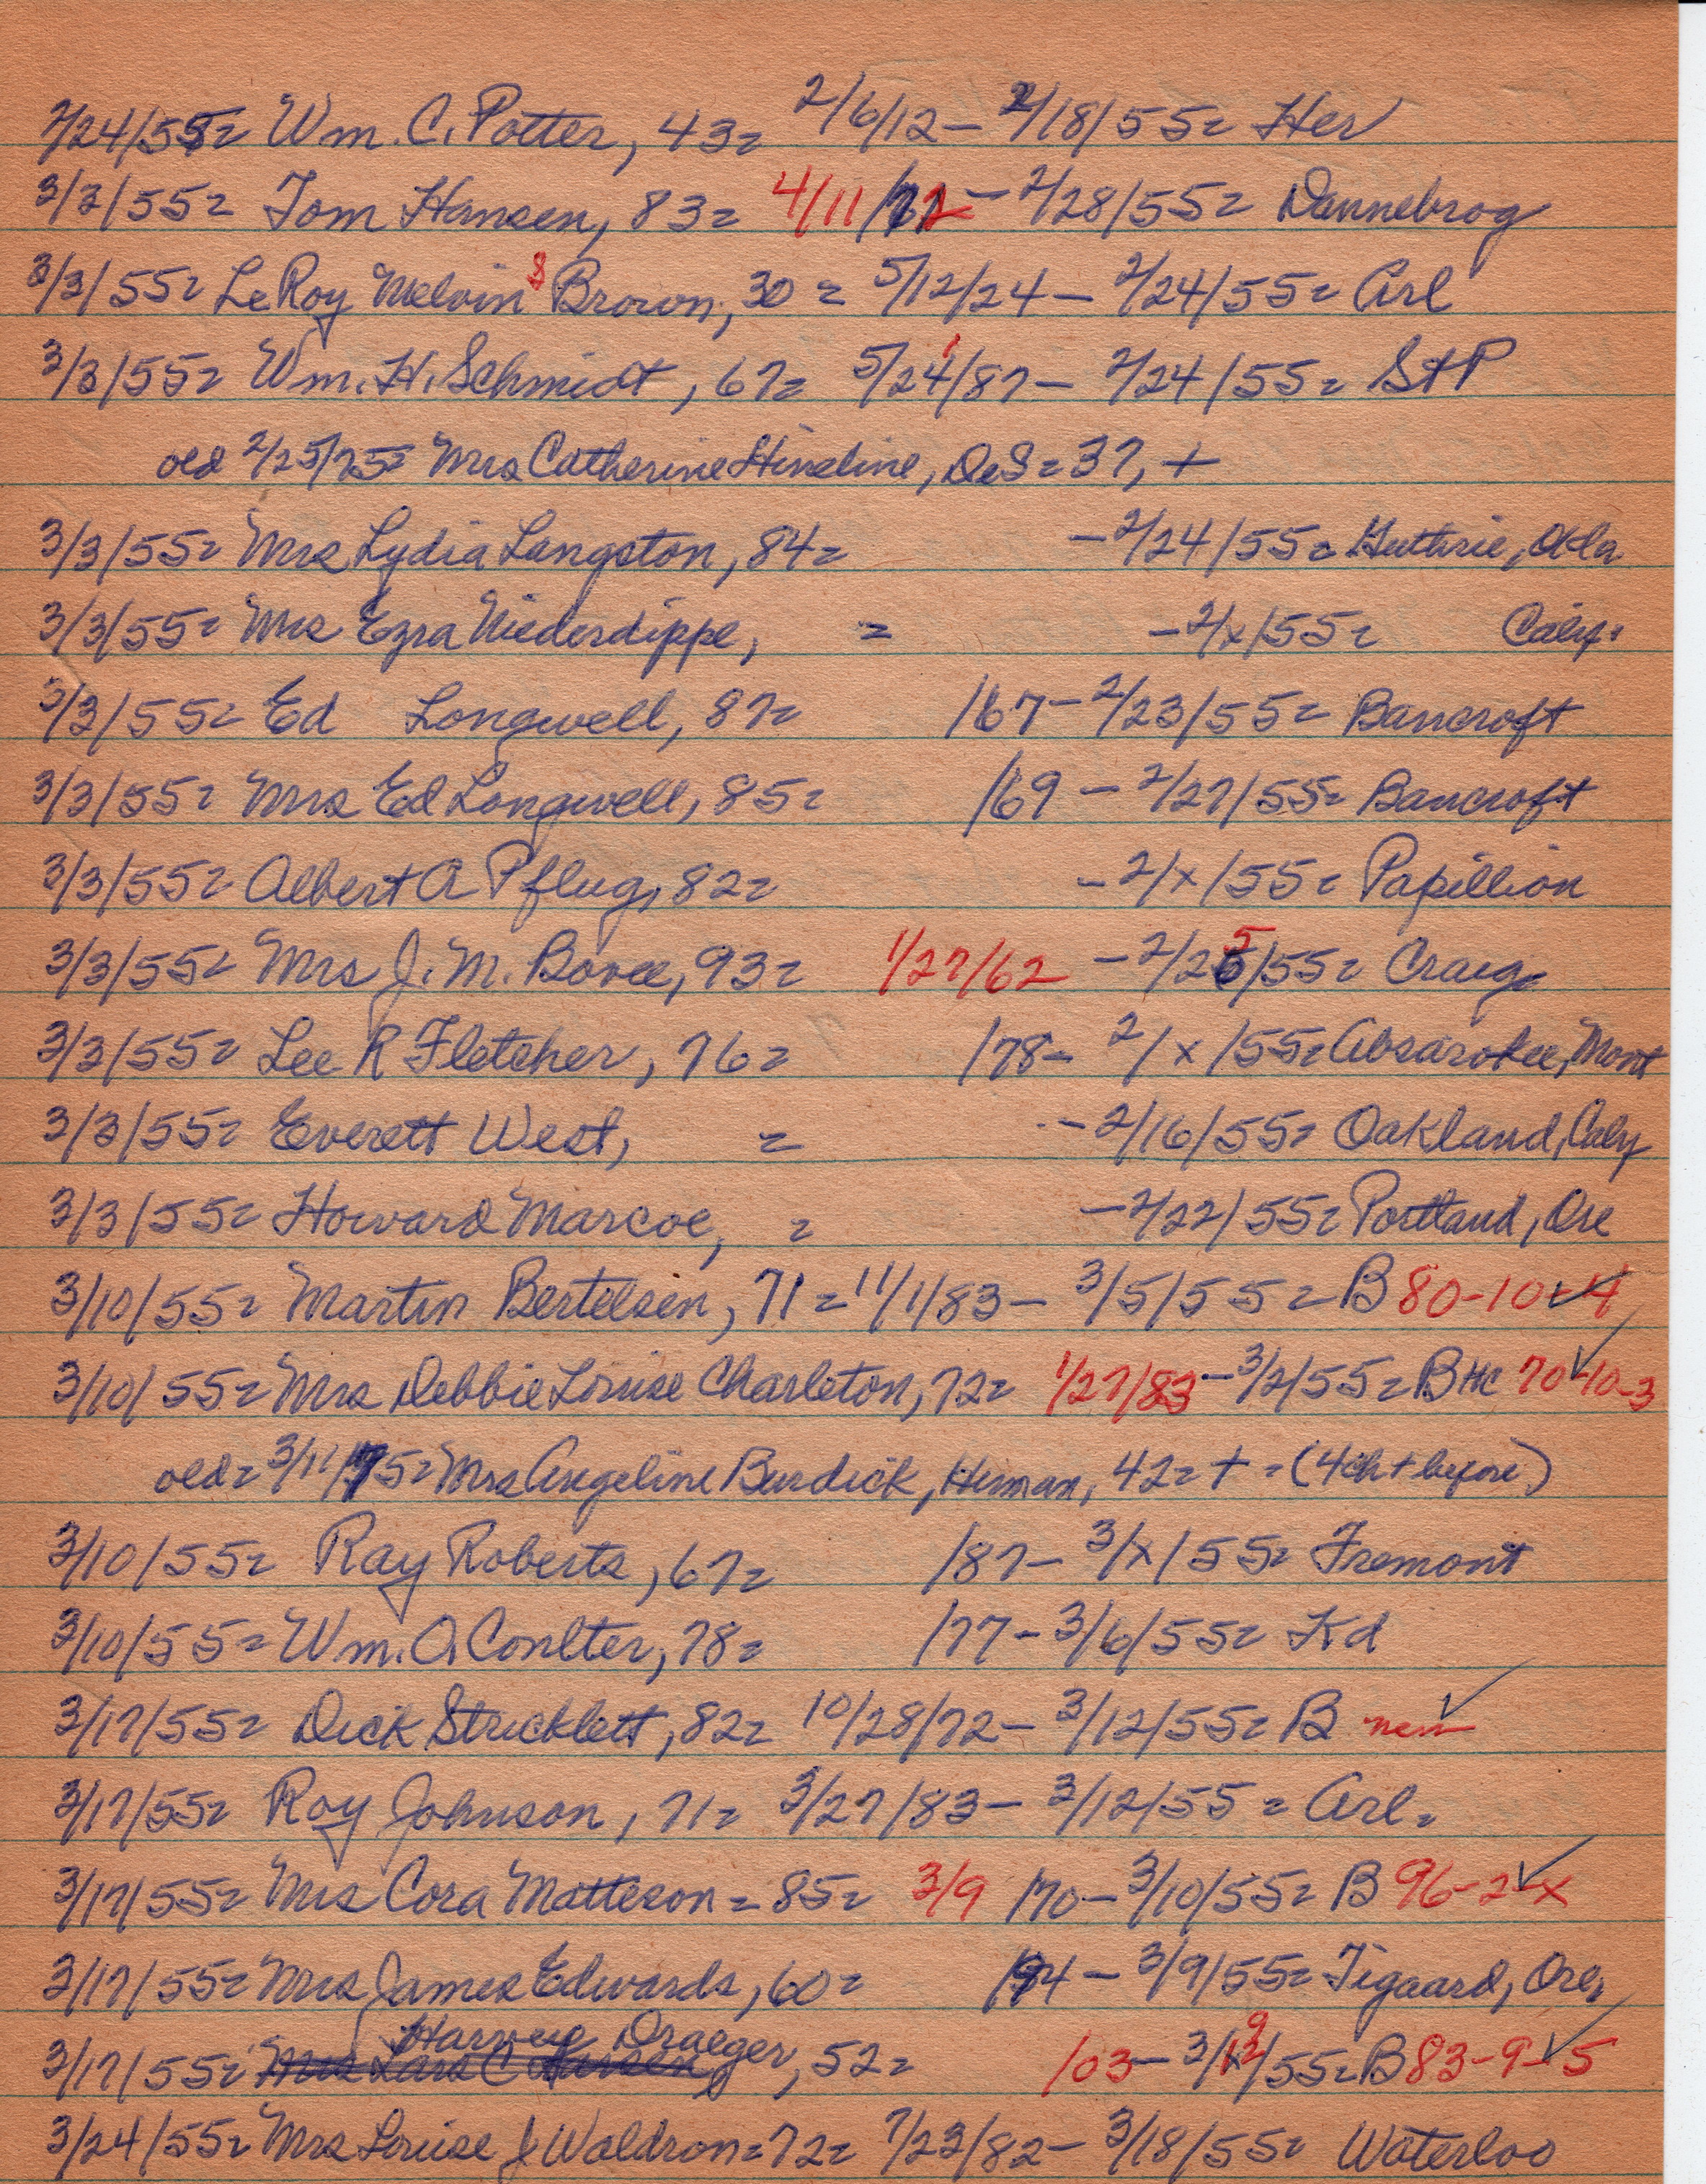 2/24/55= Wm. C. Potter, 43= 2/6/12 – 2/18/55= Her
3/3/55= Tom Hansen, 83= 4/11/72 – 2/28/55= Dannebrog
3/3/55= LeRoy Melvin Brown, 30 = 5/12/24 – 2/24/55= Arl
3/3/55= Wm. H. Schmidt, 67= 5/24/87 – 2/24/55= StP
old 2/25/75= Mrs Catherine Hineline, DeS = 37, +
3/3/55= Mrs Lydia Langston, 84= – 2/24/55= Guthrie, Okla
3/3/55= Mrs Ezra Niederdippe, = – 2/x/55= Calif.
3/3/55= Ed Longwell, 87= /67 – 2/23/55= Bancroft
3/3/55= Mrs Ed Longwell, 85= /69 – 2/27/55= Bancroft
3/3/55= Albert A Pflug, 82= – 2/x/55= Papillion
3/3/55= Mrs J. M. Bovee, 93= 1/27/62 – 2/25/55= Craig
3/3/55= Lee R Fletcher, 76= /78 – 2/x/55= Absarokee, Mont
3/3/55= Everett West, = – 2/16/55= Oakland, Calif
3/3/55= Howard Marcoe, = – 2/22/55= Portland, Ore
3/10/55= Martin Bertelsen, 71 = 11/1/83 – 3/5/55 = B 80-10-4
3/10/55= Mrs Debbie Louise Charleton, 72= 1/27/83 – 3/2/55= B HC 70-10-3
old = 3/11/75= Mrs Angeline Burdick, Herman, 42= + = (4ch + before)
3/10/55= Ray Roberts, 67= /87 – 3/x/55= Fremont
3/10/55= Wm. O. Coulter, 78= /77 – 3/6/55= Kd
3/17/55= Dick Stricklett, 82= 10/28/72 – 3/12/55= B new
3/17/55= Roy Johnson, 71= 3/27/83 – 3/12/55 = Arl.
3/17/55= Mrs Cora Matteson = 85= 3/9 /70 – 3/10/55= B 96-2-x
3/17/55= Mrs James Edwards, 60= /94 – 3/9/55= Tigaard, Ore,
3/17/55= Harvey Draeger, 52= /03 – 3/9/55= B 83-9-5
3/24/55= Mrs Louise J Waldron = 72= 7/23/82 – 3/18/55= Waterloo